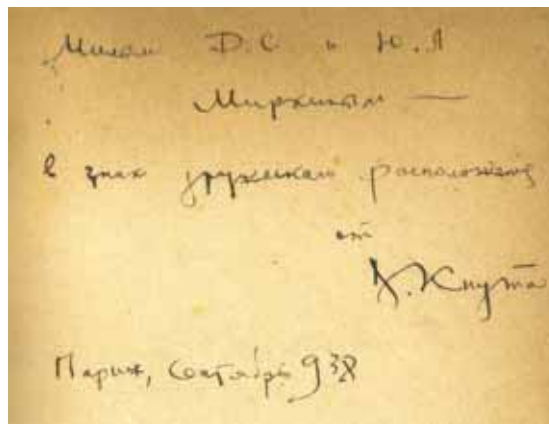 Милым Д.С. и Ю.Л
Миркиным —
в знак дружеского расположения
от
Д. Кнута
Париж, Сентябрь 938